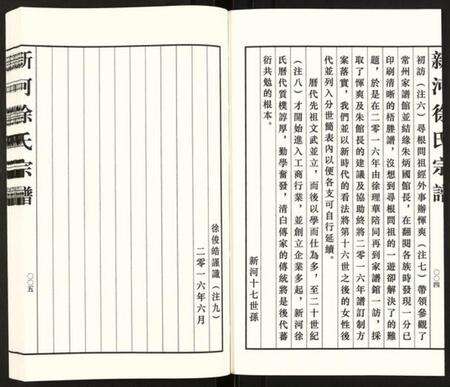 新河徐氏宗譜
初訪（注六）尋根問祖經外事辦惲爽（注七）帶領參觀了
常州家譜館並結緣朱炳國館長，在翻閱各族時發現一分已
印刷清晰的梧塍譜，沒想到尋根問祖的一遊卻解決了的難
題，於是在二零一六年由徐理華陪同再到家譜館一訪，採
取了惲爽及朱館長的建議及協助終將二零一六年譜訂制方
案落實，我們並以新時代的看法將第十六世之後的女性後
代並列入分世簡表內以便各支可自行延續。
歷代先祖文武並立，而後以學而仕為多，至二十世紀
（注八）才開始進入工商行業，並創立企業多起，新河徐
氏歷代質樸諄厚，勤學奮發，清白傳家的傳統將是後代蕃
衍共勉的根本。
新河十七世孫
〇〇四
徐俊皓謹識（注九）
二零一六年六月
新河徐氏宗譜
〇〇五